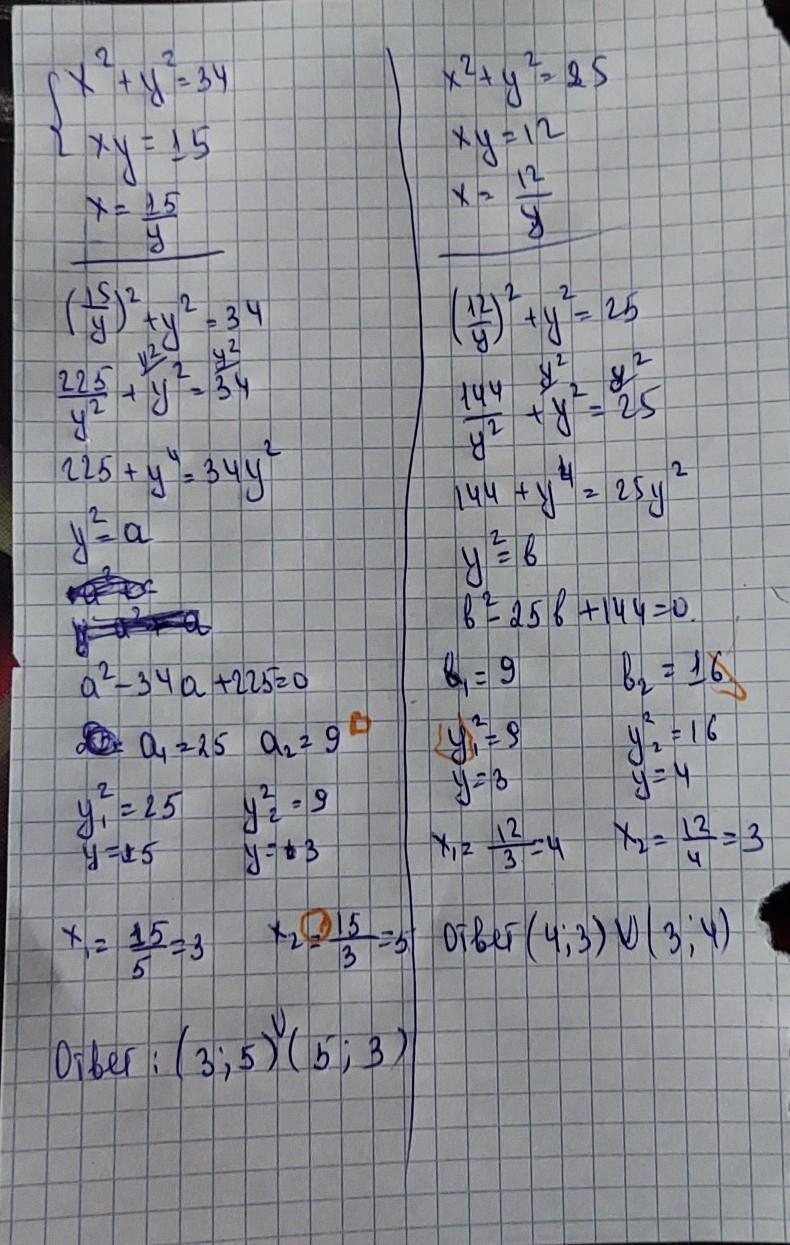 x² + y² = 34
xy = 15
x = 15/y
(15/y)² + y² = 34
225/y² + y² = 34
y² y²
225 + y⁴ = 34y²
y² = a
a² - 34a + 225 = 0
a₁ = 25 a₂ = 9
y₁² = 25 y₂² = 9
y = 5 y = 3
x₁ = 15/5 = 3 x₂ = 15/3 = 5
Ответ: (3; 5) ∪ (5; 3)
x² + y² = 25
xy = 12
x = 12/y
(12/y)² + y² = 25
y² y²
144/y² + y² = 25
144 + y⁴ = 25y²
y² = в
в² - 25в + 144 = 0
в₁ = 9 в₂ = 16
y₁² = 9 y₂² = 16
y = 3 y = 4
x₁ = 12/3 = 4 x₂ = 12/4 = 3
Ответ (4; 3) ∪ (3; 4)